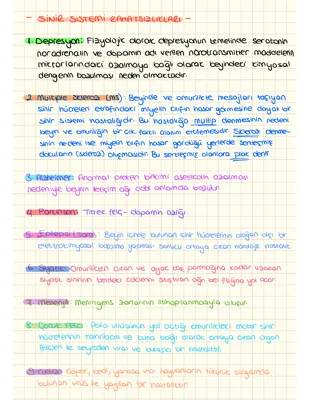 - SİNİR SİSTEMİ RAHATSIZLIKLARI -
1. Depresyon: Fizyolojik olarak depresyonun temelinde serotonin
noradrenalin ve dopamin adı verilen nörotransmitter maddelerin
miktarlarındaki azalmaya bağlı olarak beyindeki kimyasal
dengenin bozulması neden olmaktadır.
2. Multiple Sckleroz (MS): Beyinde ve omurilikte mesajları taşıyan
sinir hücreleri etrafındaki miyelin kılıfın hasar görmesine dayalı bir
sinir sistemi hastalığıdır. Bu hastalığa multip denmesinin nedeni
beyin ve omuriliğin bir çok farklı alanını etkilemesidir. Skleroz denme-
sinin nedeni ise miyelin kılıfın hasar gördüğü yerlerde sertleşmiş
dokuların (skleroz) oluşmasıdır. Bu sertleşmiş alanlara plak denir
3. Alzheimer: Anormal protein birikimi asetilkolin azalması
nedeniyle beynin iletişim ağı ciddi anlamda bozulur.
4. Parkinson: Titrek felç - dopamin azlığı
5. Epilepsi (sara): Beyin içinde bulunan sinir hücrelerinin olağan dışı bir
elektrokimyasal boşalma yapması sonucu ortaya çıkan nörolojik hastalık
6. Siyatik: Omurilikten çıkan ve ayak baş parmağına kadar uzanan
siyatik sinirinin
7. Menenjit: Meninges zarlarının iltihaplanmasıyla oluşur.
8. Çocuk Felci: Polio virüsünün yol açtığı omurilikteki motor sinir
hücrelerinin tahribatı ve buna bağlı olarak ortaya çıkan
felçleri ile seyreden viral ve bulaşıcı bir hastalıktır.
9. Kuduz: Köpek, kedi, yarasa vb. hayvanların tükürük salgısında
bulunan virüs ile yayılan bir hastalıktır.